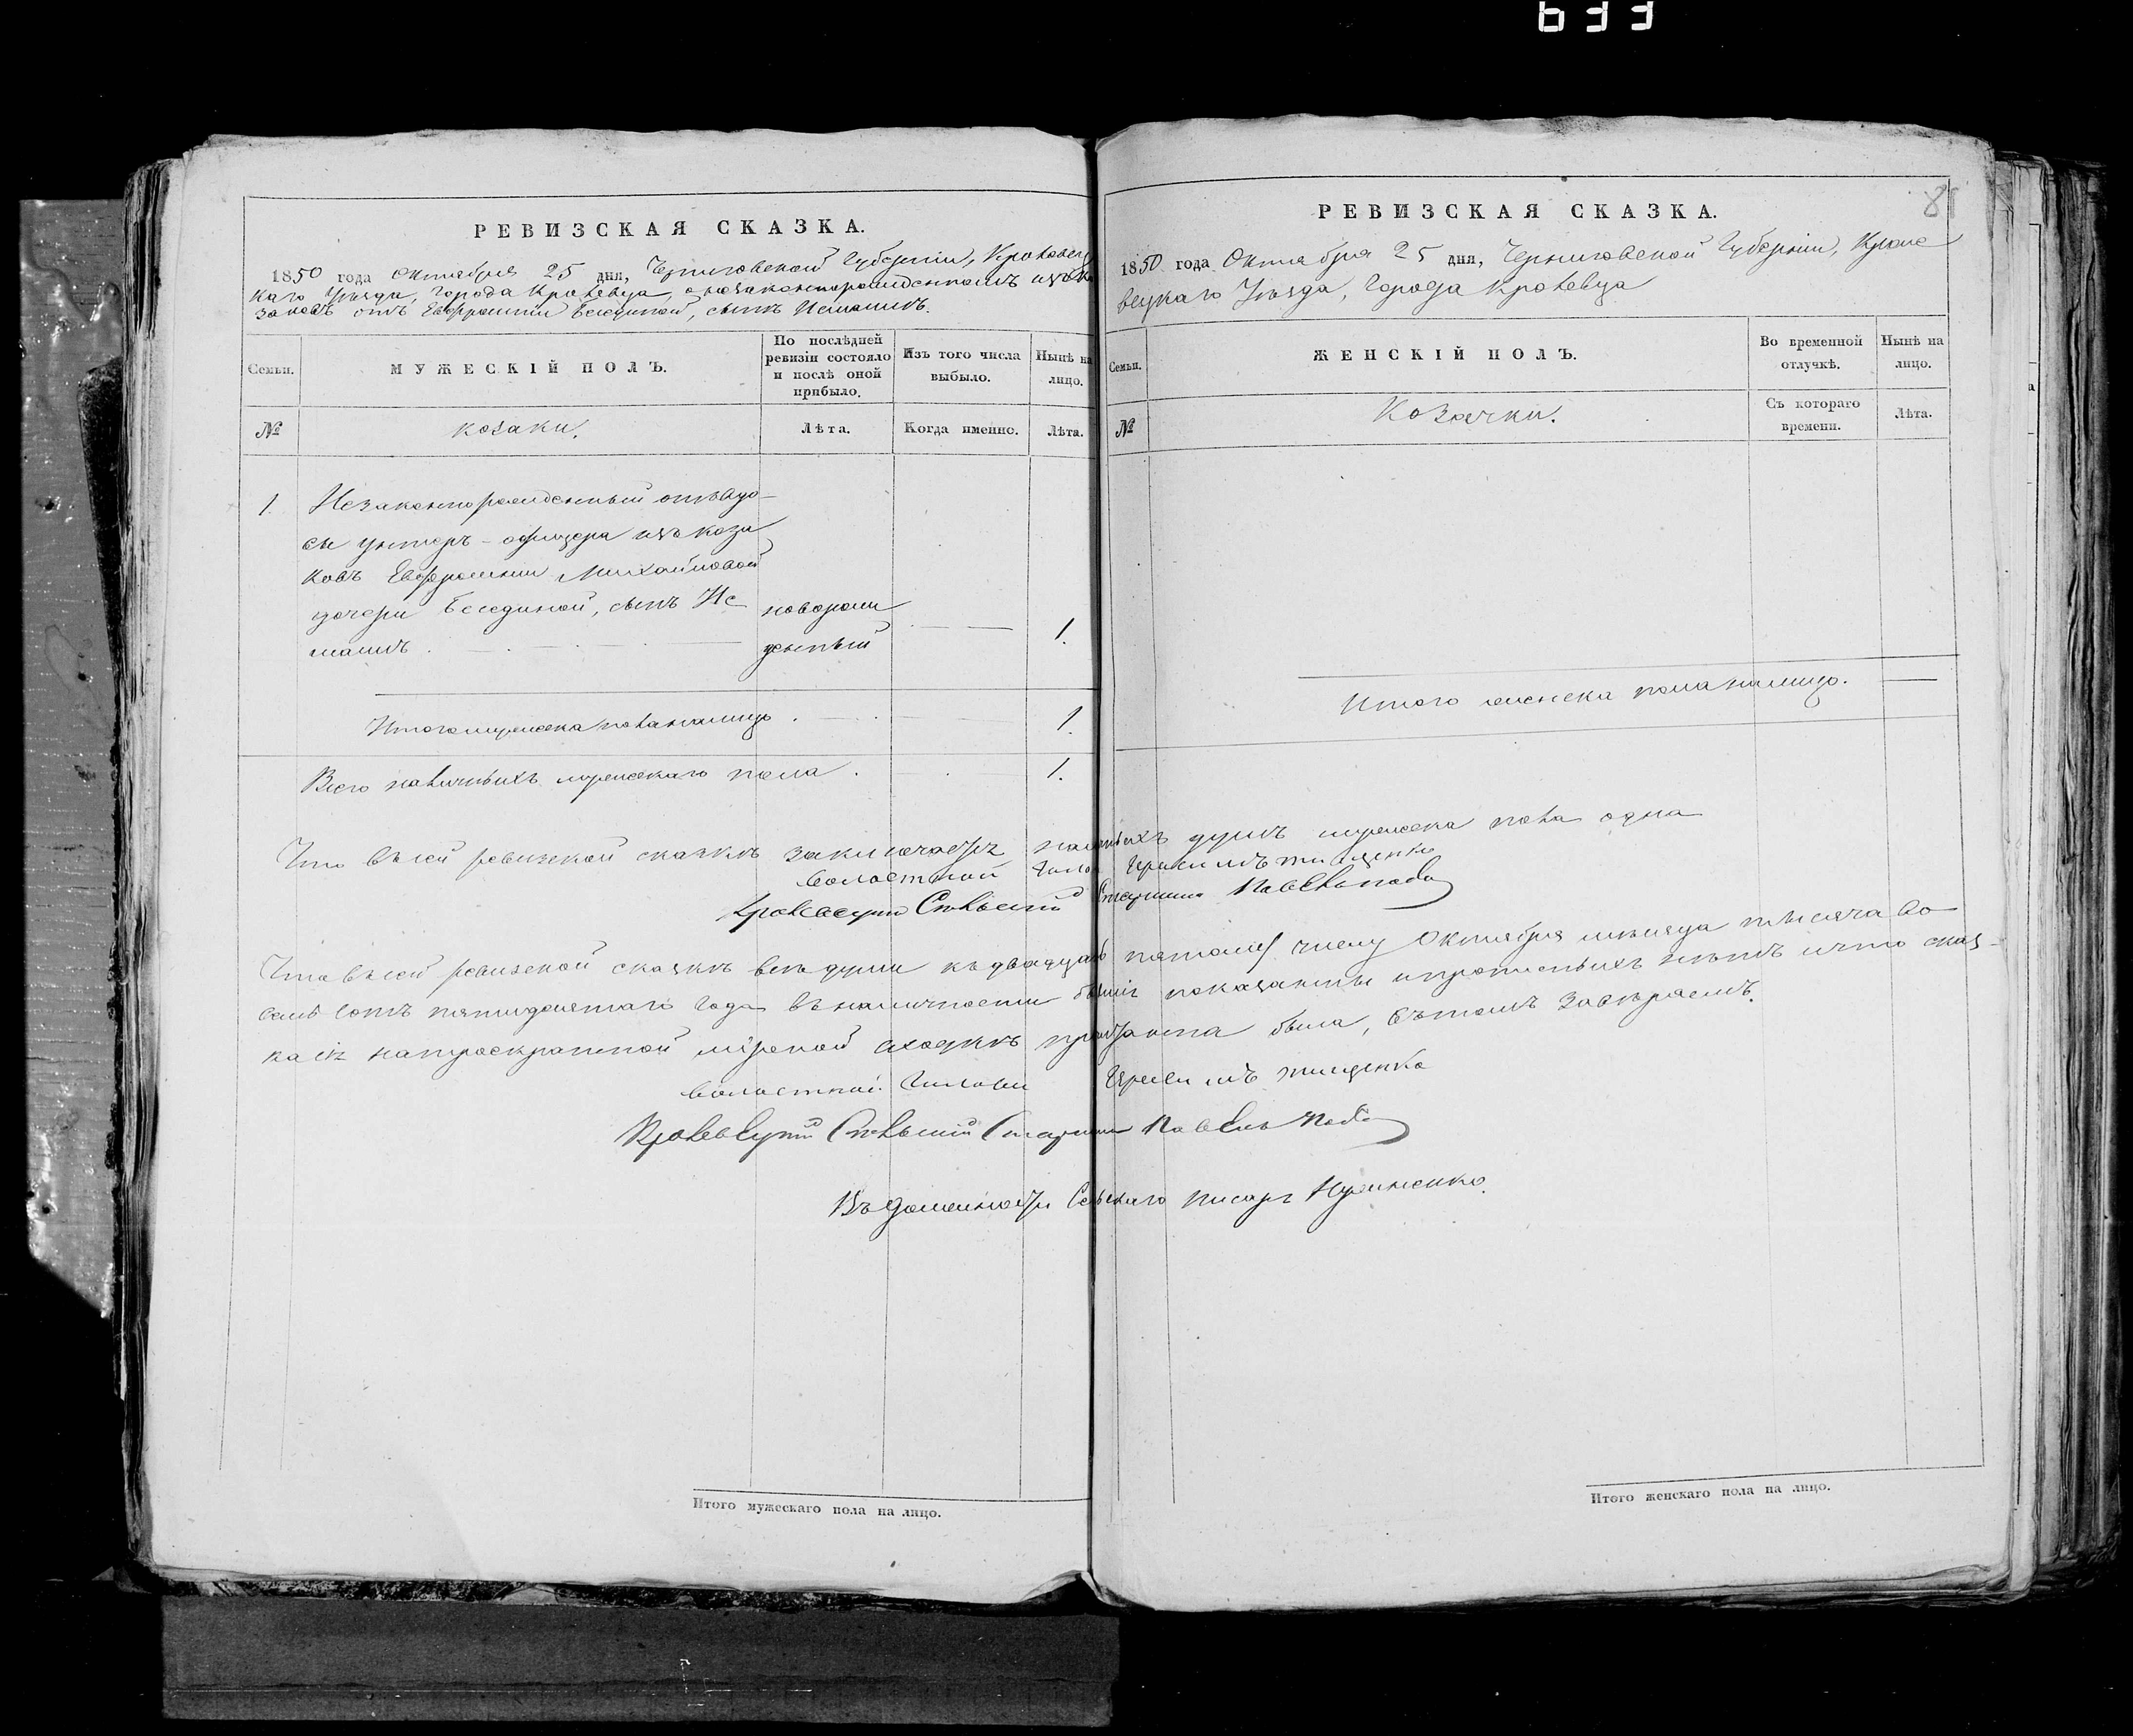 633
РЕВИЗСКАЯ СКАЗКА.
1850 года Октября 25 дня, Черниговской Губерніи, Кролевец
каго Уезда, города Кролевца, о незаконнорожденномъ изъ ко
заковъ отъ Евфросиніи Бесединой, сынъ
Семьи.
МУЖЕСКІЙ ПОЛЪ.
По послѣдней ревизіи состояло и послѣ оной прибыло.
Изъ того числа выбыло.
Нынѣ на лицо.
№
козаки.
Лѣта.
Когда именно.
Лѣта.
1. Незаконнорожденный отъ вдо-
вы унтеръ-офицера изъ коза
ковъ Евфросиніи Михайловой
дочери Бесединой, сынъ новорож
денный 1.
Итого мужеска пола на лицо 1.
Всего наличныхъ мужескаго пола 1.
РЕВИЗСКАЯ СКАЗКА.
1850 года Октября 25 дня, Черниговской Губерніи, Кроле
вецкаго Уезда, Города Кролевца
Семьи.
ЖЕНСКІЙ ПОЛЪ.
Во временной отлучкѣ.
Нынѣ на лицо.
№
Козачки.
Съ котораго времени.
Лѣта.
Итого женска пола на лицо.
Что въ сей ревизской сказкѣ заключается наличныхъ душъ мужеска пола одна
волостной Голова
Кролевецкій Сельскій Старшина Павелъ
Что въ сей ревизской сказкѣ все души къ двадцать пятому числу Октября месяца тысяча во
семь сотъ пятидесятаго года въ наличности бывшіе показанны и прописныхъ нетъ и что сказ-
ка сія на троекратной мірской сходке была, въ томъ заверяемъ.
волостной Голова
Кролевецкій Сельскій Старшина Павелъ
Въ должности Сельскаго писаря
Итого мужескаго пола на лицо.
Итого женскаго пола на лицо.